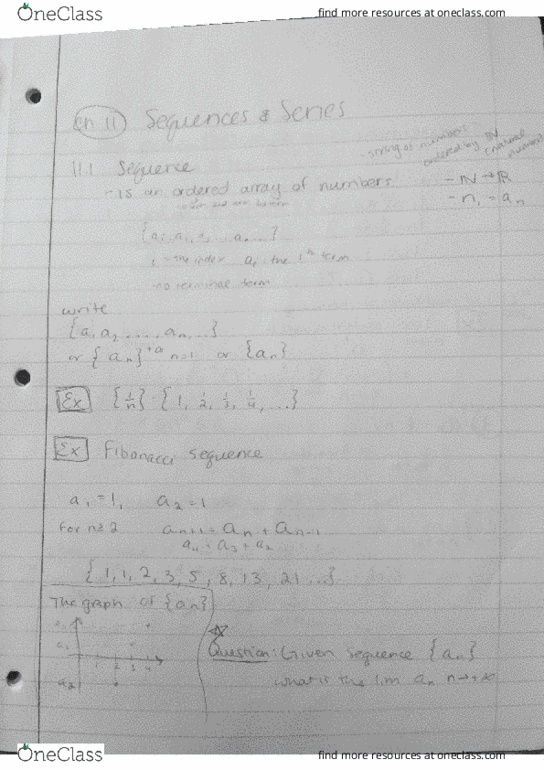 OneClass
find more resources at oneclass.com
Ch 11 Sequences & Series
11.1 Sequence
- string of numbers
ordered by ℕ
- is an ordered array of numbers
- ℕ → ℝ
- n, - aₙ
i - the index aᵢ the iᵗʰ term
no terminal term
write
{a, a₂ ..., aₙ, ...}
or {aₙ} n=1 or {aₙ}
Ex {1/n} {1, 1/2, 1/3, 1/4, ...}
Ex Fibonacci sequence
a₁ = 1, a₂ = 1
For n≥2 aₙ₊₁ = aₙ + aₙ₋₁
a₄ = a₃ + a₂
{1, 1, 2, 3, 5, 8, 13, 21 ...}
The graph of {aₙ}
1 2 3 4
a₂
Question: Given sequence {aₙ}
what is the lim aₙ n→+∞
OneClass
find more resources at oneclass.com